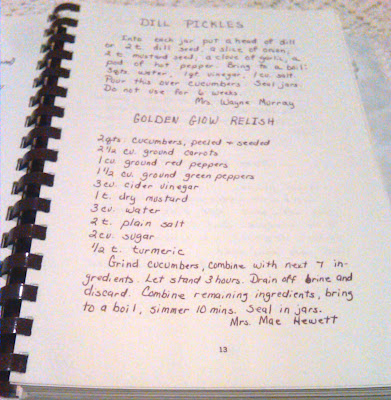 DILL PICKLES
Into each jar put a head of dill
or 2 t. dill seed, a slice of onion,
2 t. mustard seed, a clove of garlic, a
pod of hot pepper. Bring to a boil:
3qts. water, 1qt. vinegar, 1 cu. salt.
Pour this over cucumbers. Seal jars.
Do not use for 6 weeks.
Mrs. Wayne Murray
GOLDEN GLOW RELISH
2qts. cucumbers, peeled + seeded
2 1/2 cu. ground carrots
1 cu. ground red peppers
1 1/2 cu. ground green peppers
3 cu. cider vinegar
1 t. dry mustard
3 cu. water
2 t. plain salt
2 cu. sugar
1/2 t. turmeric
Grind cucumbers, combine with next 7 in-
gredients. Let stand 3 hours. Drain off brine and
discard. Combine remaining ingredients, bring
to a boil, simmer 10 mins. Seal in jars.
Mrs. Mae Hewett
13